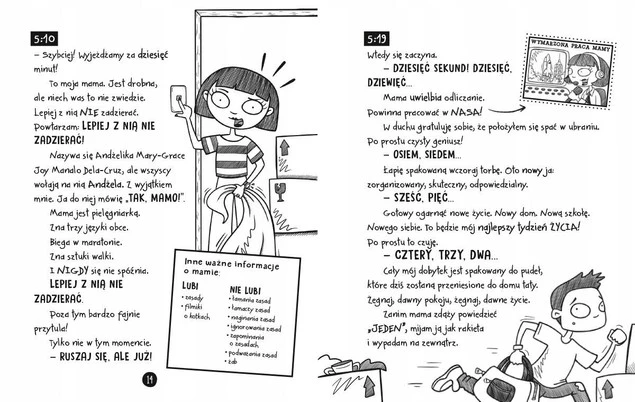 5:10
– Szybciej! Wyjeżdżamy za dziesięć
minut!
To moja mama. Jest drobna,
ale niech was to nie zwiedzie.
Lepiej z nią NIE zadzierać.
Powtarzam: LEPIEJ Z NIĄ NIE
ZADZIERAĆ!
Nazywa się Andżelika Mary-Grace
Joy Manalo Dela-Cruz, ale wszyscy
wołają na nią Andżela. Z wyjątkiem
mnie. Ja do niej mówię „TAK, MAMO!”.
Mama jest pielęgniarką.
Zna trzy języki obce.
Biega w maratonie.
Zna sztuki walki.
I NIGDY się nie spóźnia.
LEPIEJ Z NIĄ NIE
ZADZIERAĆ.
Poza tym bardzo fajnie
przytula!
Tylko nie w tym momencie.
– RUSZAJ SIĘ, ALE JUŻ!
Inne ważne informacje
o mamie:
LUBI
• zasady
• filmiki
o kotkach
NIE LUBI
• łamania zasad
• łamaczy zasad
• naginania zasad
• ignorowania zasad
• zapominania
o zasadach
• podważania zasad
• żab
14
5:19
Wtedy się zaczyna.
– DZIESIĘĆ SEKUND! DZIESIĘĆ,
DZIEWIĘĆ...
Mama uwielbia odliczanie.
Powinna pracować w NASA!
WYMARZONA PRACA MAMY
W duchu gratuluję sobie, że położyłem się spać w ubraniu.
Po prostu czysty geniusz!
– OSIEM, SIEDEM...
Łapię spakowaną wczoraj torbę. Oto nowy ja:
zorganizowany, skuteczny, odpowiedzialny.
– SZEŚĆ, PIĘĆ...
Gotowy ogarnąć nowe życie. Nowy dom. Nową szkołę.
Nowego siebie. To będzie mój najlepszy tydzień ŻYCIA!
Po prostu to czuję.
– CZTERY, TRZY, DWA...
Cały mój dobytek jest spakowany do pudeł,
które dziś zostaną przeniesione do domu taty.
Żegnaj, dawny pokoju, żegnaj, dawne życie.
Zanim mama zdąży powiedzieć
„JEDEN”, mijam ją jak rakieta
i wypadam na zewnątrz.